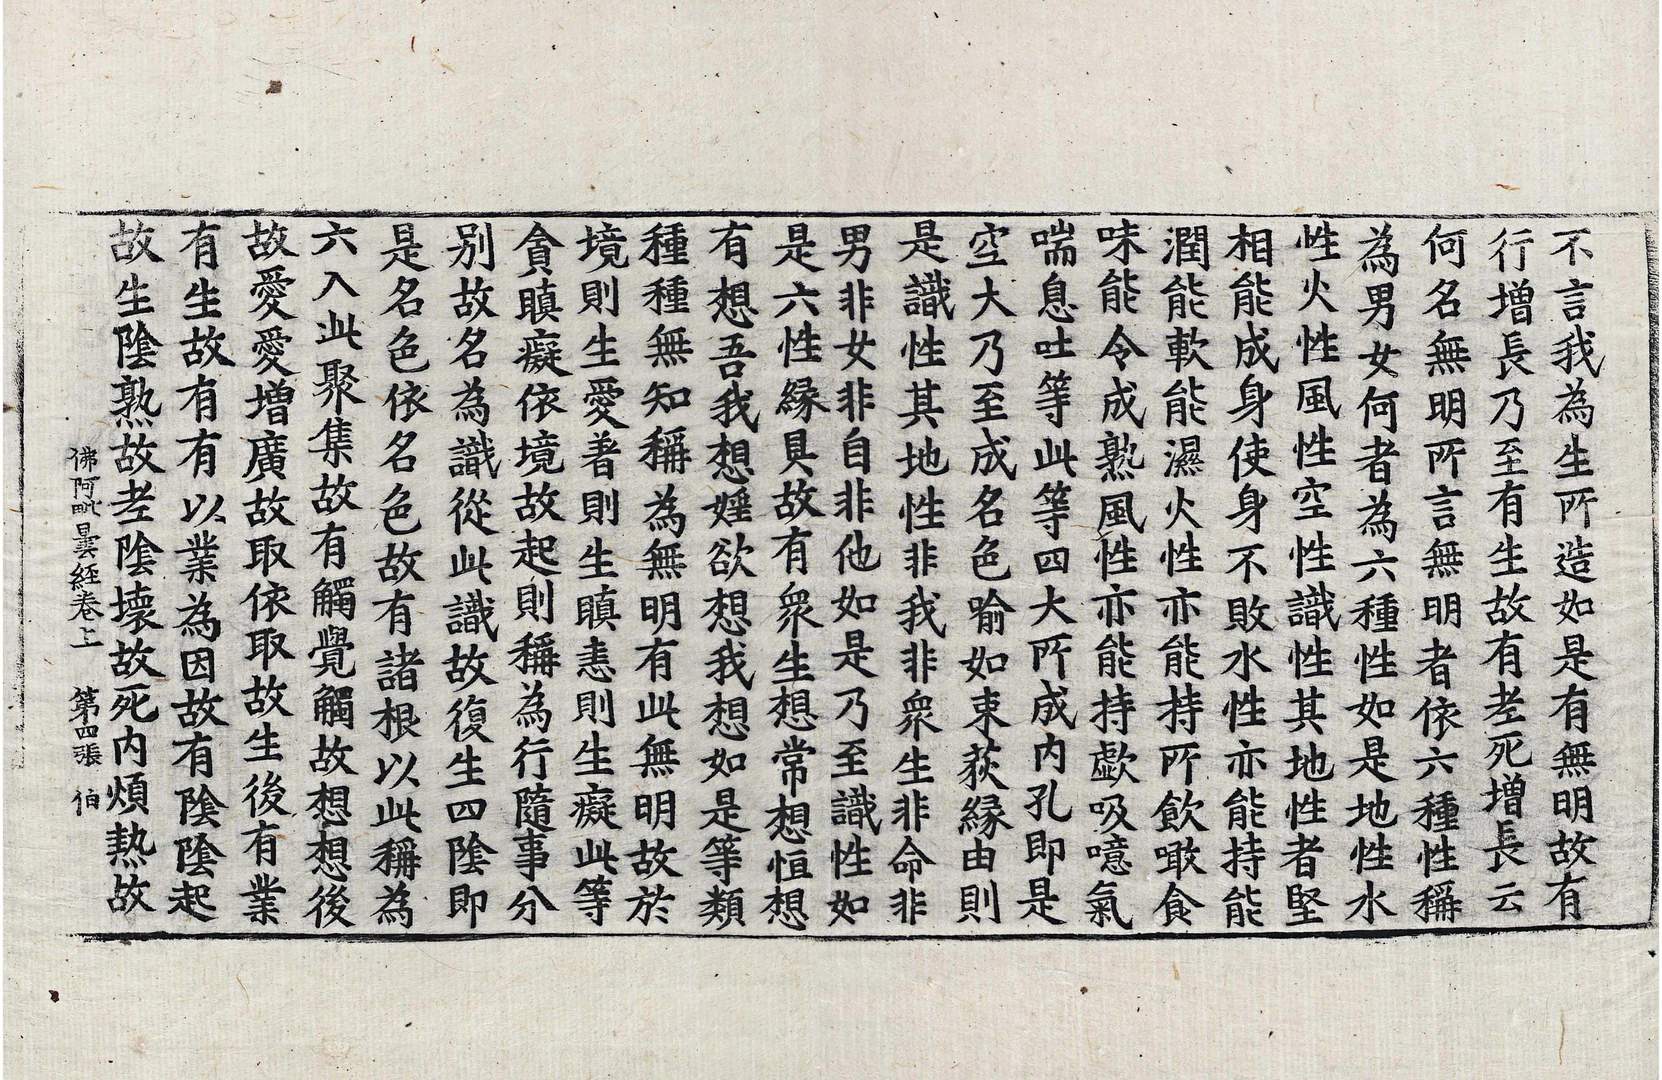 不言我為生所造如是有無明故有
行增長乃至有生故有老死增長云
何名無明所言無明者依六種性稱
為男女何者為六種性如是地性水
性火性風性空性識性其地性者堅
相能成身使身不敗水性亦能持能
潤能軟能濕火性亦能持所飲噉食
味能令成熟風性亦能持歔吸噫氣
喘息吐等此等四大所成內孔即是
空大乃至成名色喻如束荻緣由則
是識性其地性非我非眾生非命非
男非女非自非他如是乃至識性如
是六性緣具故有眾生想常想恒想
有想吾我想婬欲想我想如是等類
種種無知稱為無明有此無明故於
境則生愛著則生瞋恚則生癡此等
貪瞋癡依境故起則稱為行隨事分
別故名為識從此識故復生四陰即
是名色依名色故有諸根以此稱為
六入此聚集故有觸覺觸故想想後
故愛愛增廣故取依取故生後有業
有生故有有以業為因故有陰陰起
故生陰熟故老陰壞故死內煩熱故
佛阿毗曇經卷上 第四張 伯